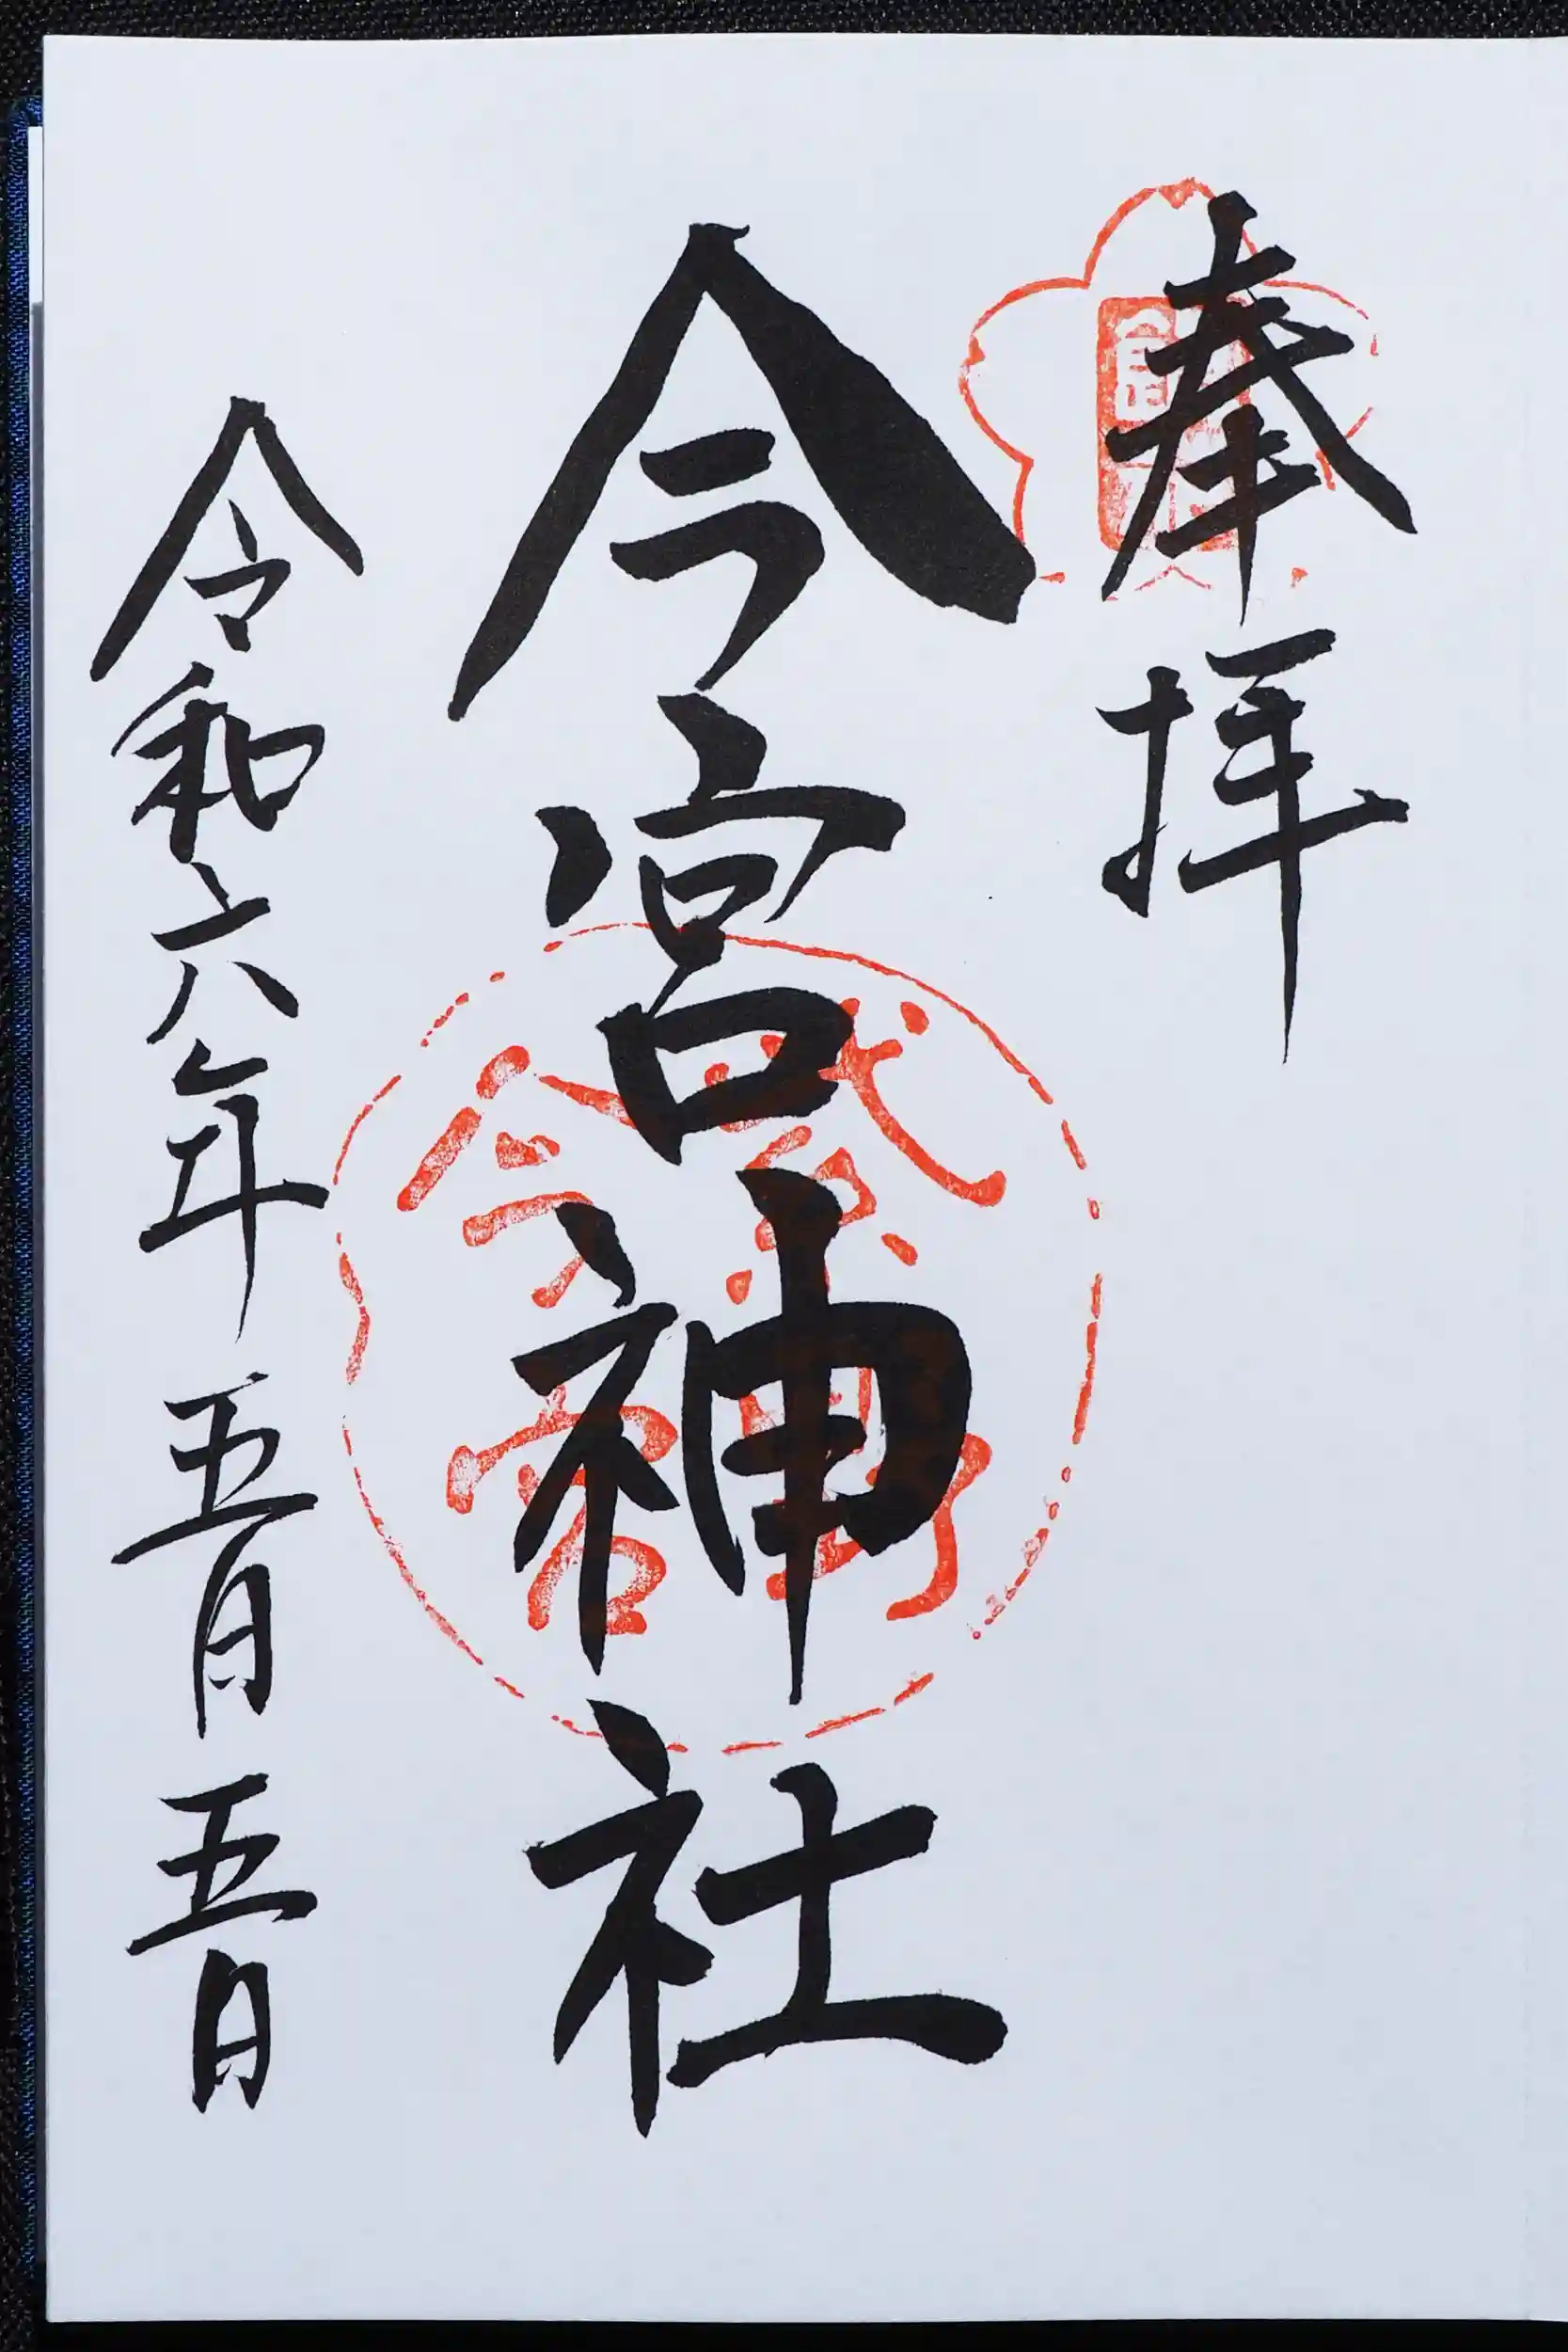 奉拝
今宮神社
令和六年五月五日
今宮